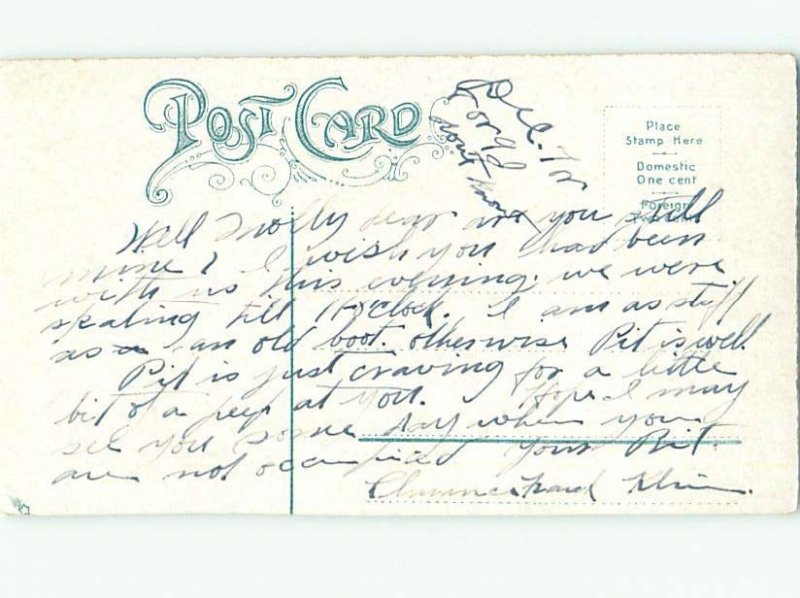 POST CARD
Dec.
Place
Stamp Here
Domestic
One cent
Foreign
Well Molly dear are you still
mine? I wish you had been
with us this evening. we were
skating till 11 o'clock. I am as stiff
as an old boot. otherwise Pit is well.
Pit is just craving for a little
bit of a peep at you. Hope I may
see you some day when you
are not occupied Your Pit.